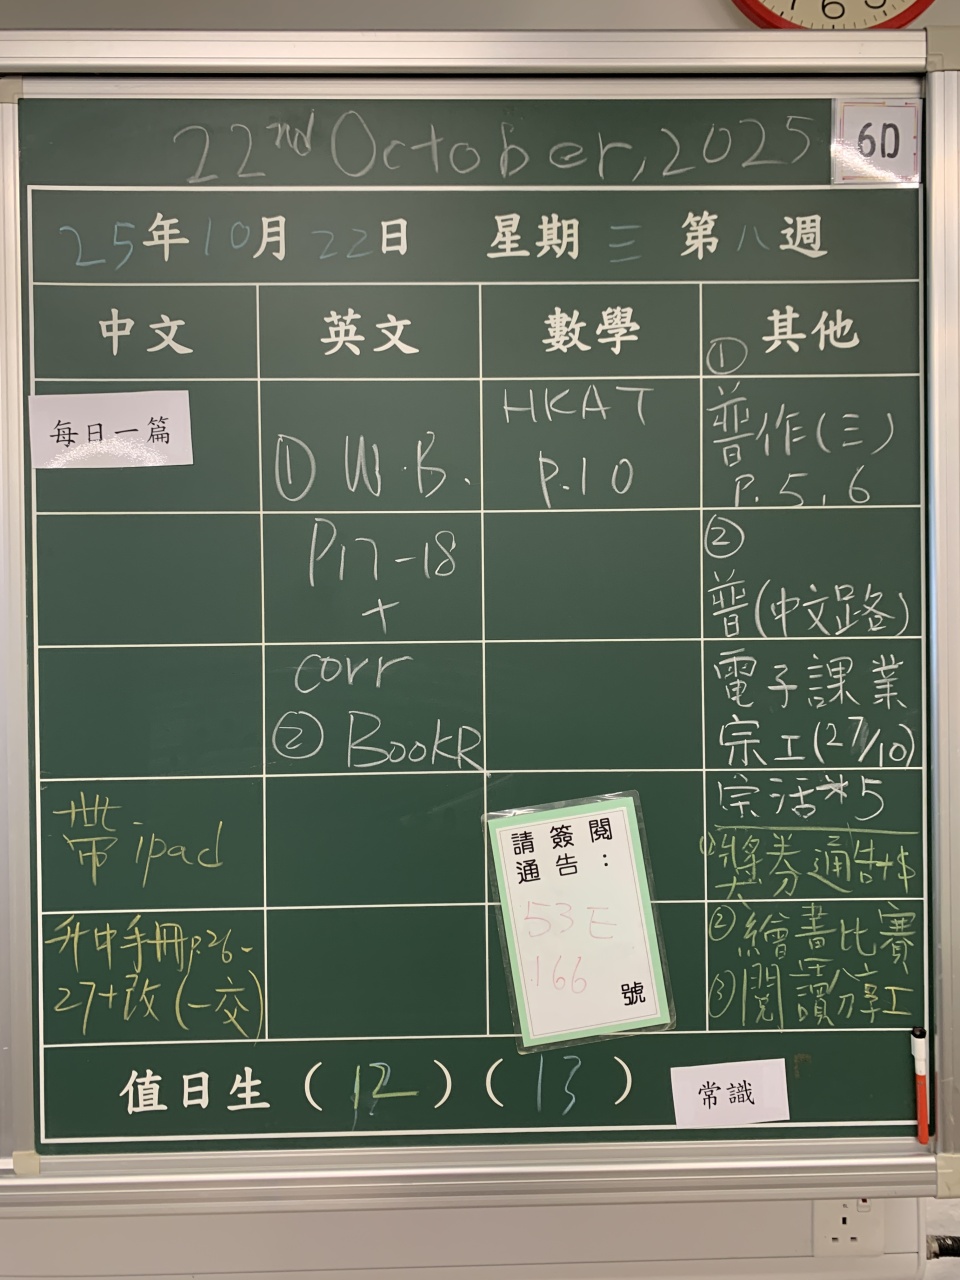 22nd October, 2025
6D
25年10月22日 星期三 第八週
中文 英文 數學 其他
每日一篇
① W.B.
P17-18
+
corr
② BookR
HKAT
P.10
①
普作(三)
P.5,6
②
普(中文路)
電子課業
宗工(27/10)
宗活*5
①獎券通告+$
②繪畫比賽
③閱讀分享工
帶ipad
升中手冊p.26-
27+改(一交)
請簽閱
通告:
53E
166
號
值日生(12)(13)
常識